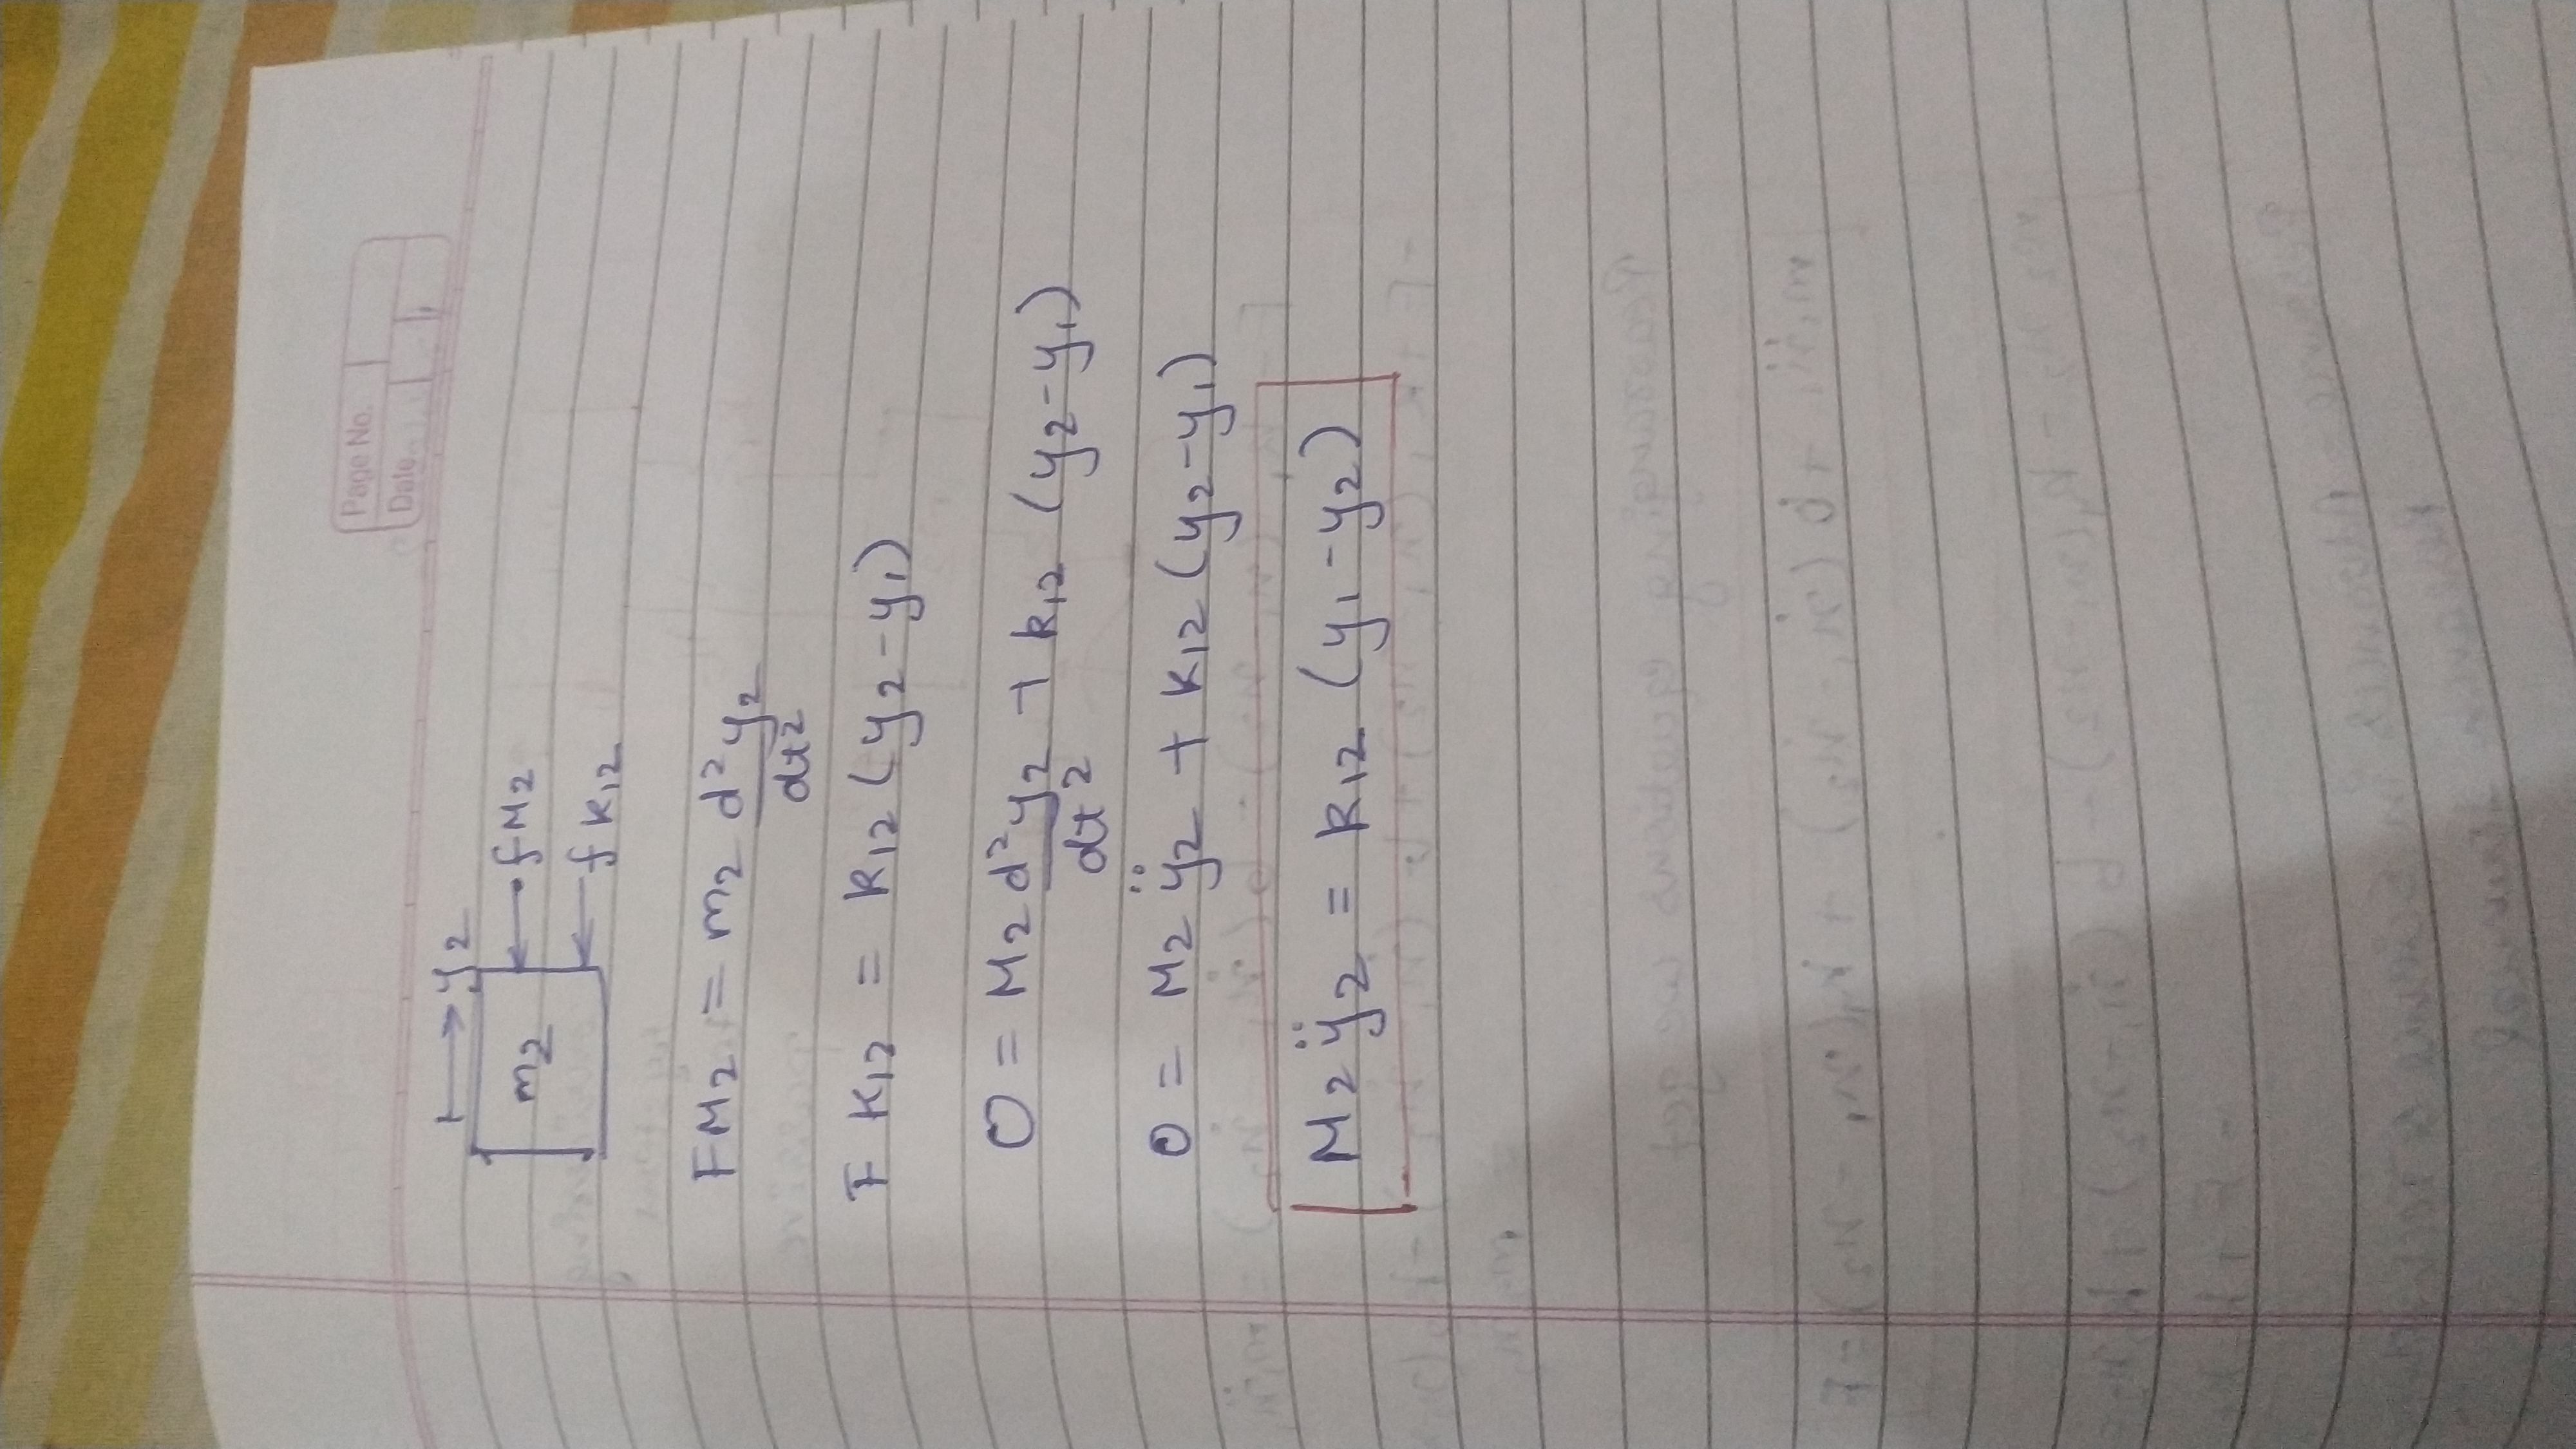 Page No.
Date
y2
m2
fM2
fK12
FM2 = m2 d²y2/dt²
F K12 = K12 (y2-y1)
0 = M2 d²y2/dt² + k12 (y2-y1)
0 = M2 ÿ2 + K12 (y2-y1)
M2 ÿ2 = k12 (y1-y2)